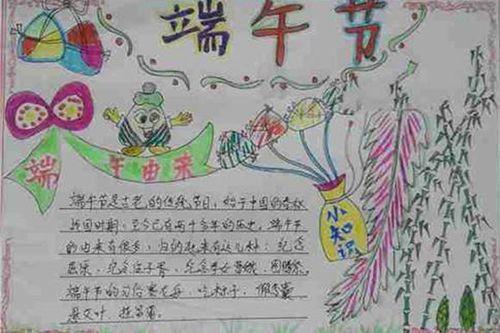 端午节
端午由来
小知识
端午节是古老的传统节日，始于中国的春秋
战国时期，至今已有两千多年的历史，端午节
的由来有很多，归纳起来有这几种：纪念
屈原，纪念伍子胥，纪念孝女曹娥
端午节的习俗赛龙舟，吃粽子，佩香囊
悬艾叶，挂菖蒲。